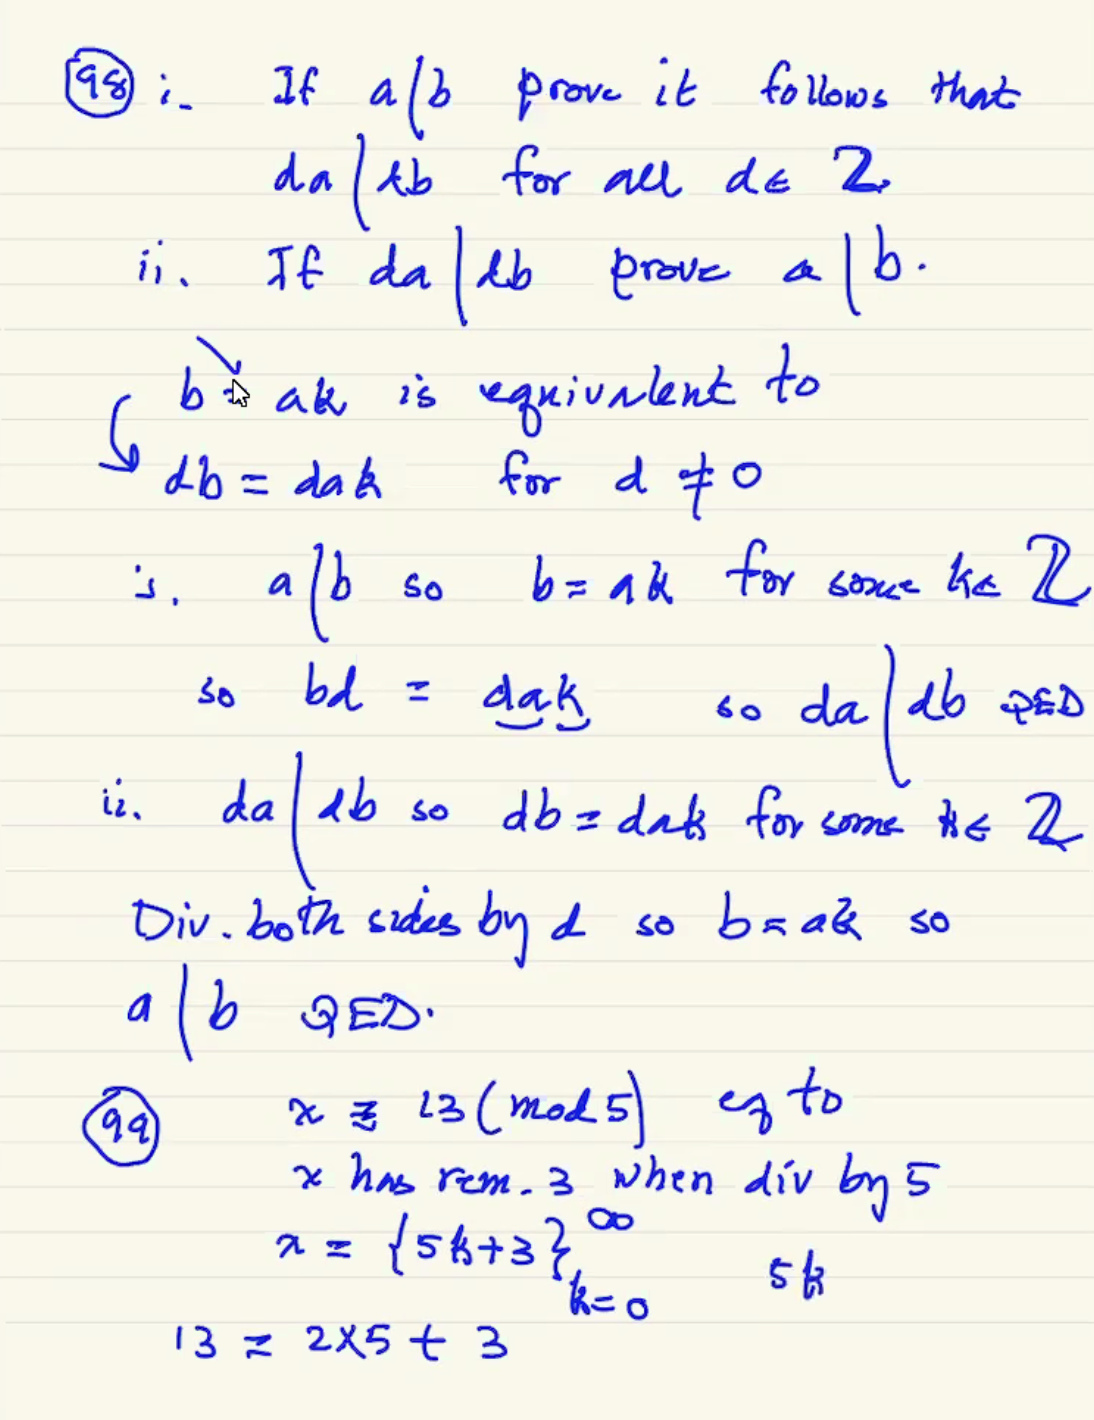 98 i. If a|b prove it follows that
da | db for all d∈ ℤ.
ii. If da | db prove a | b.
b = ak is equivalent to
db = dak for d ≠ 0
i. a|b so b = ak for some k∈ ℤ
so bd = dak so da | db QED
ii. da | db so db = dak for some k∈ ℤ
Div. both sides by d so b = ak so
a | b QED.
99 x ≡ 13 (mod 5) eq to
x has rem. 3 when div by 5
x = {5k+3}^∞_{k=0} 5k
13 = 2×5 + 3